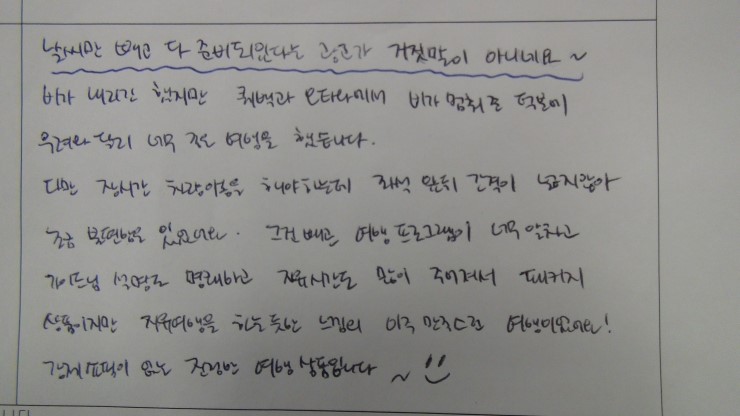 날씨만 빼고 다 준비되있다는 광고가 거짓말이 아니네요~
비가 내리긴 했지만 퀘백과 오타와에서 비가 멈춰준 덕분에
우려와 달리 너무 좋은 여행을 했습니다.
다만 장시간 차량이동을 해야하는데 좌석 앞뒤 간격이 넓지않아
조금 불편함은 있었어요. 그걸 빼곤 여행 프로그램이 너무 알차고
가이드님 설명도 명쾌하고 자유시간도 많이 주어져서 패키지
상품이지만 자유여행을 하는 듯한 느낌의 아주 만족스런 여행이었어요!
강제쇼핑이 없는 진정한 여행상품입니다~